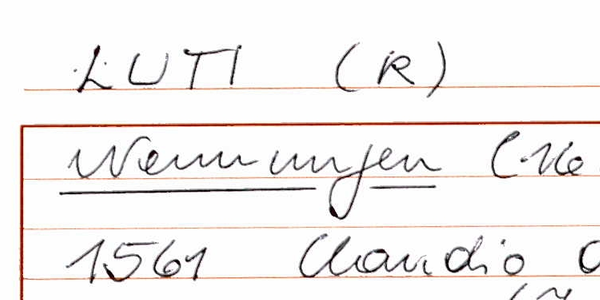 LUTI (R)
Nennungen (16
1561 Claudio